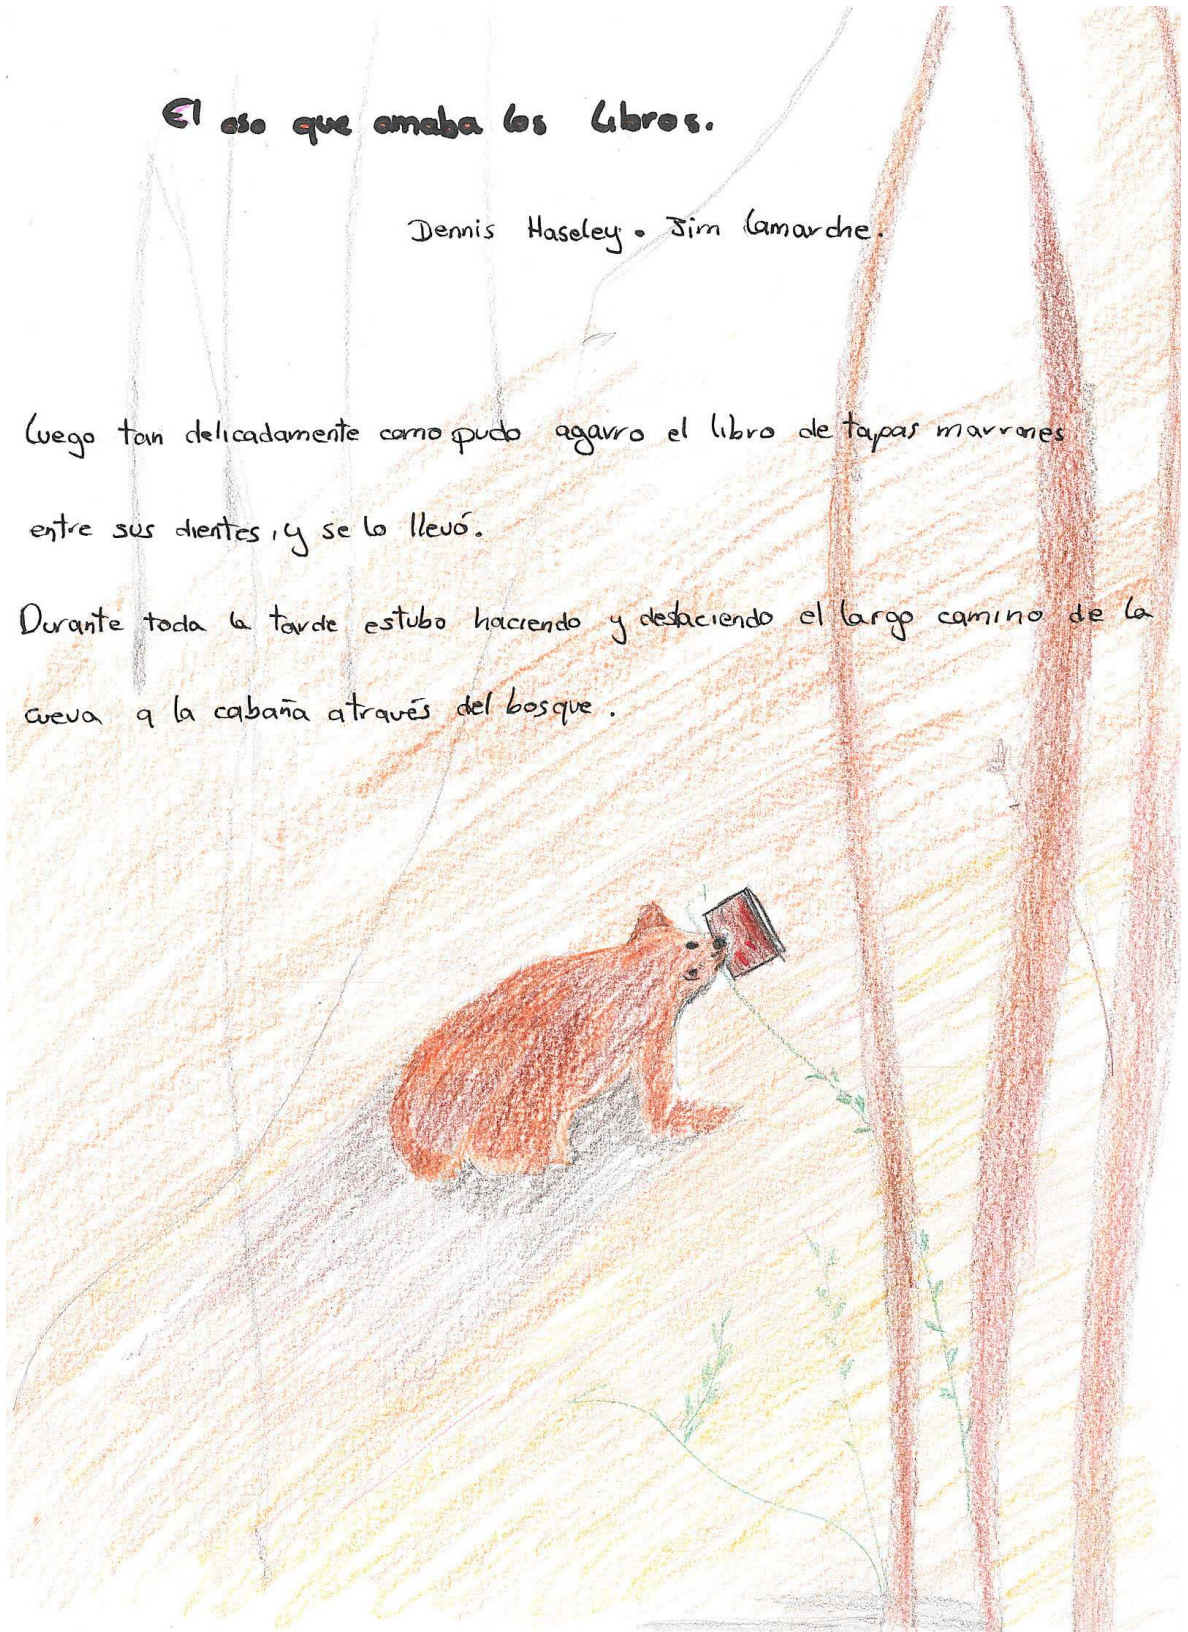 El oso que amaba los libros.
Dennis Haseley. Jim Lamarche.
Luego tan delicadamente como pudo agarro el libro de tapas marrones
entre sus dientes, y se lo llevó.
Durante toda la tarde estubo haciendo y deshaciendo el largo camino de la
cueva a la cabaña através del bosque.